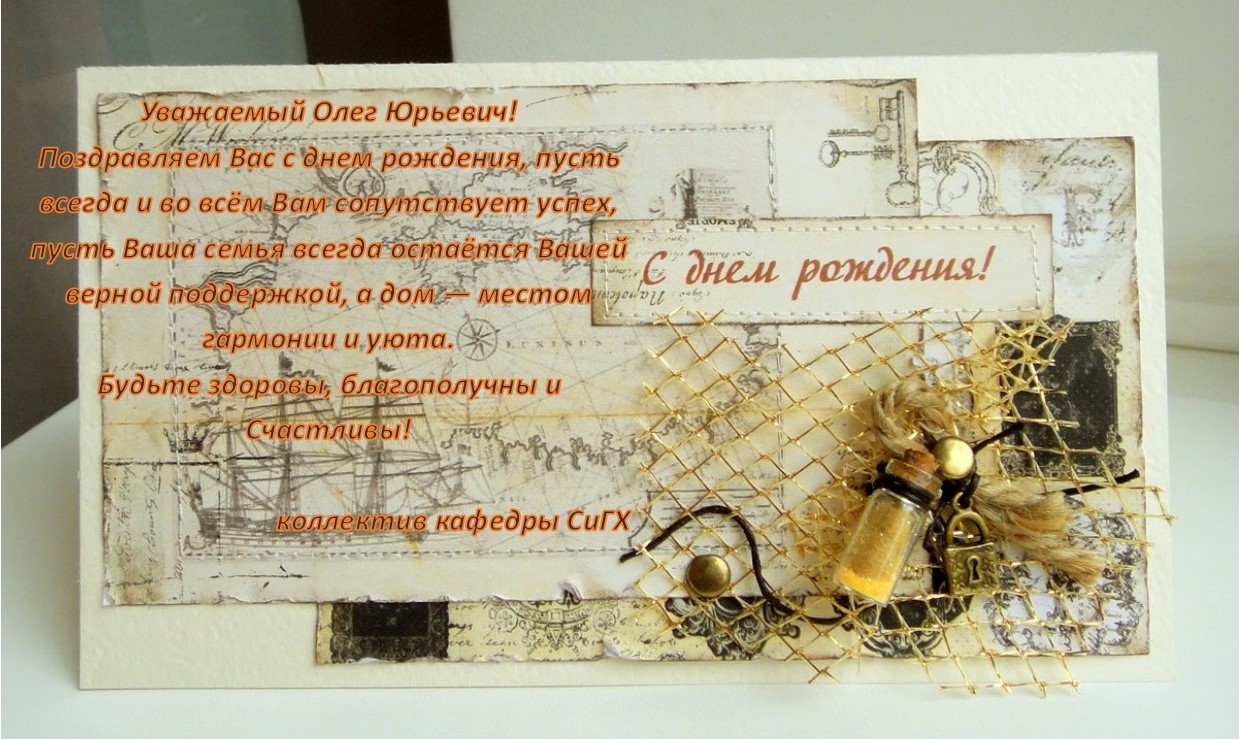 Уважаемый Олег Юрьевич!
Поздравляем Вас с днем рождения, пусть
всегда и во всём Вам сопутствует успех,
пусть Ваша семья всегда остаётся Вашей
верной поддержкой, а дом — местом
гармонии и уюта.
Будьте здоровы, благополучны и
Счастливы!
коллектив кафедры СиГХ
С днем рождения!